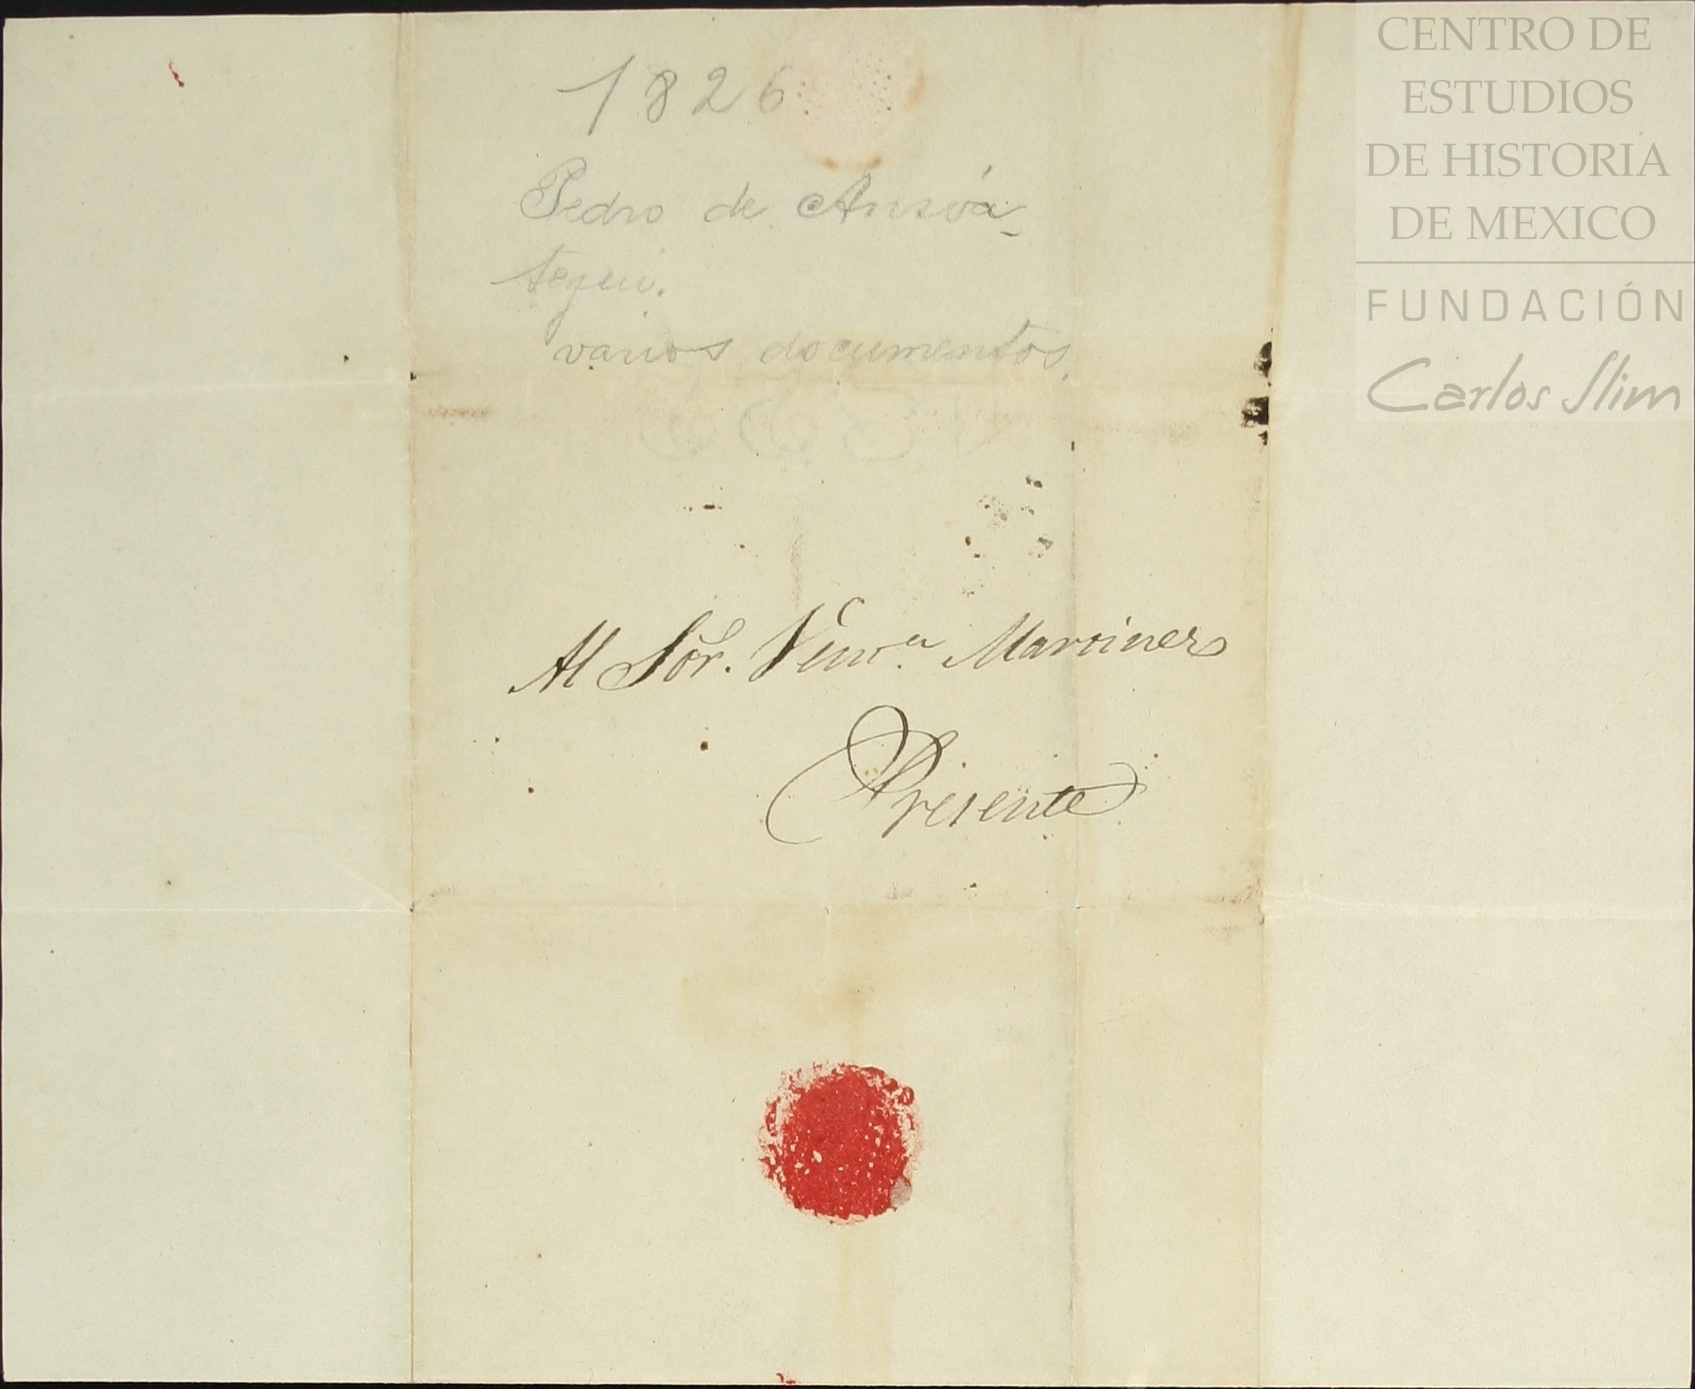 1826
Pedro de Ansoá-
tegui.
varios documentos.
Al Sor. Martinez
Presente
CENTRO DE
ESTUDIOS
DE HISTORIA
DE MEXICO
FUNDACIÓN
Carlos Slim